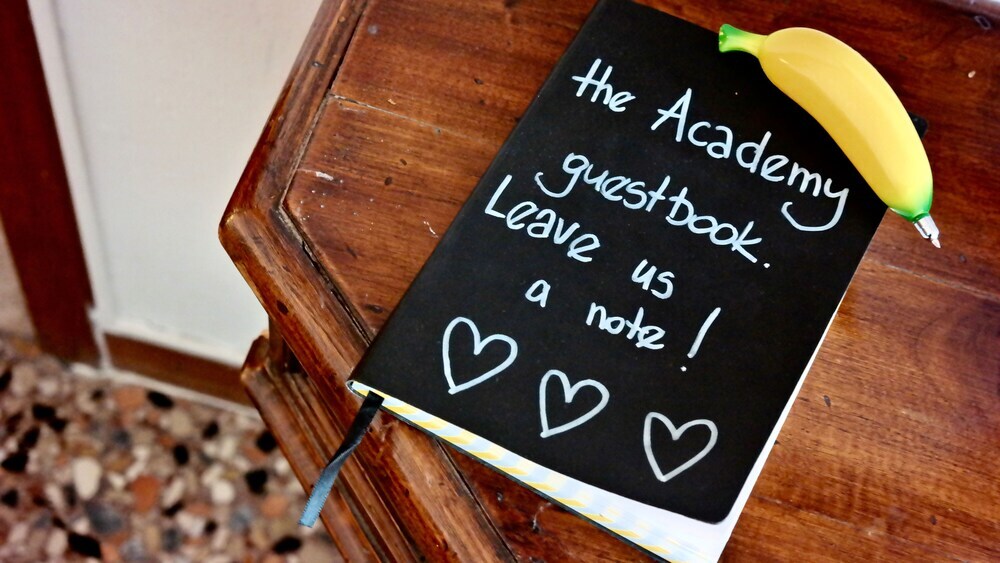 the Academy
guestbook.
Leave us
a note!